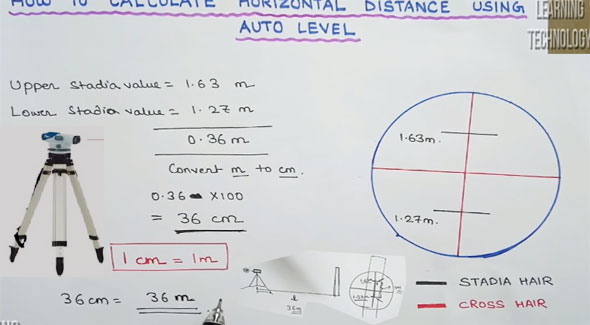 HOW TO CALCULATE HORIZONTAL DISTANCE USING
AUTO LEVEL
LEARNING
TECHNOLOGY
Upper stadia value = 1.63 m
Lower Stadia value = 1.27 m
0.36 m
Convert m to cm.
0.36 X100
= 36 cm
1 cm = 1m
36 cm = 36 m
1.63m.
1.27m.
36m
STADIA HAIR
CROSS HAIR